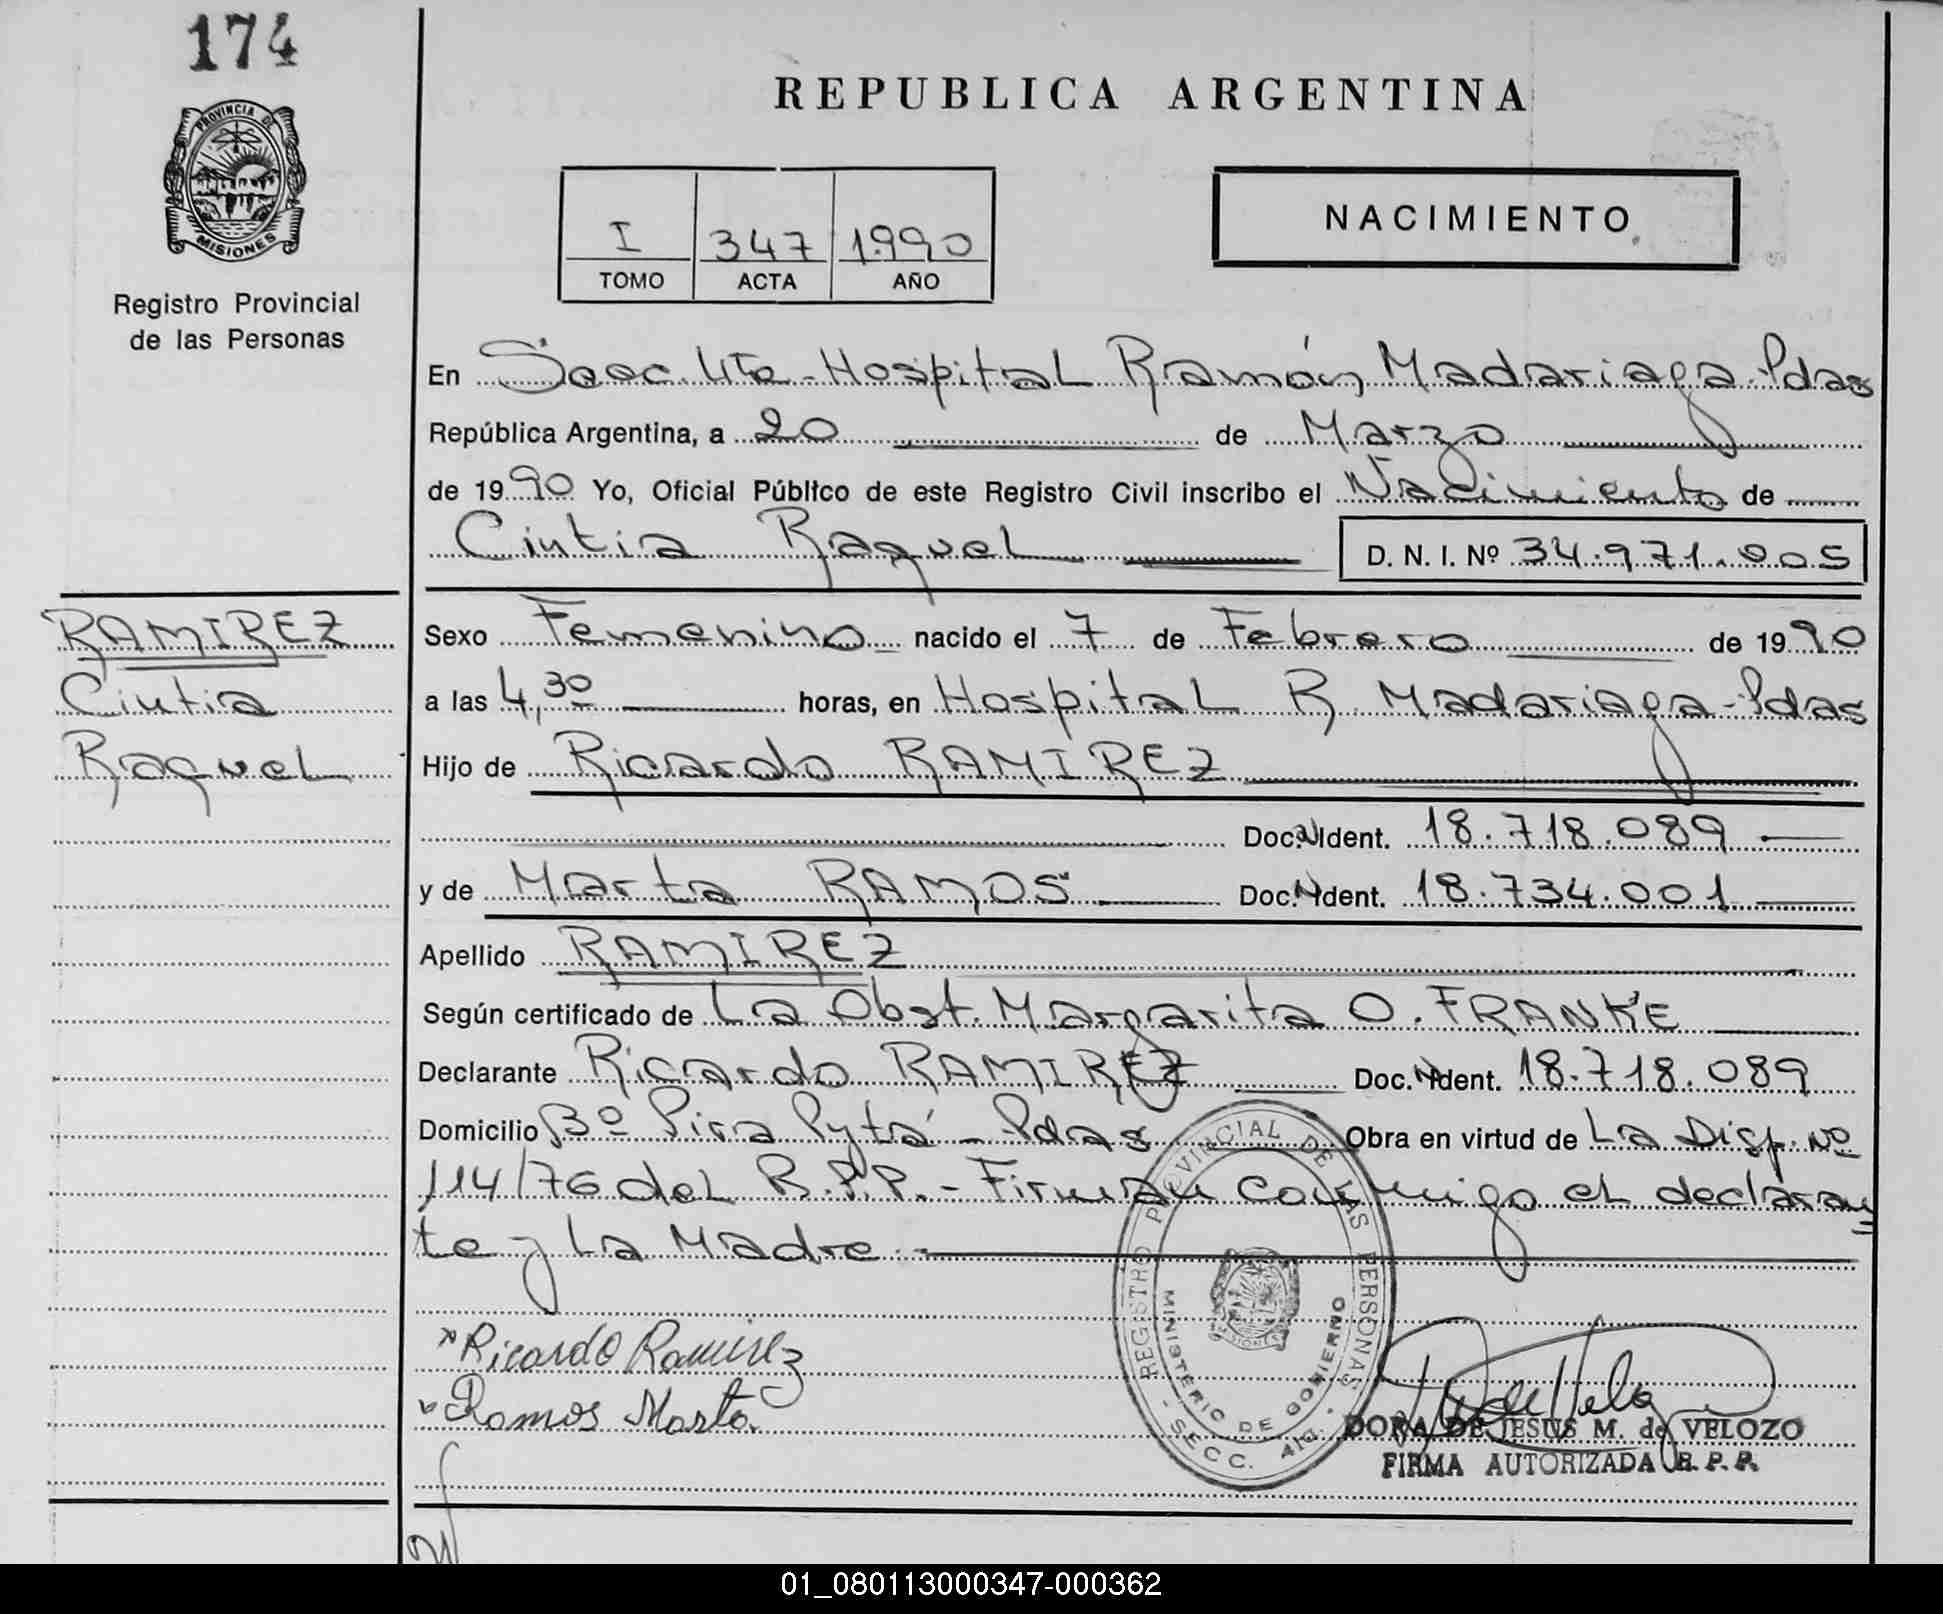 174
PROVINCIA DE
MISIONES
Registro Provincial
de las Personas
REPUBLICA ARGENTINA
I 347 1990
TOMO ACTA AÑO
NACIMIENTO
En Secc. 4ta - Hospital Ramón Madariaga - Pdas
República Argentina, a 20 de Marzo
de 1990 Yo, Oficial Público de este Registro Civil inscribo el Nacimiento de
Cintia Raquel D. N. I. Nº 34.971.905
RAMIREZ
Cintia
Raquel
Sexo Femenino nacido el 7 de Febrero de 1990
a las 4,30 horas, en Hospital R. Madariaga - Pdas
Hijo de Ricardo RAMIREZ
Doc. N Ident. 18.718.089
y de Marta RAMOS Doc. N Ident. 18.734.001
Apellido RAMIREZ
Según certificado de La Obst. Margarita O. FRANKE
Declarante Ricardo RAMIREZ Doc. N Ident. 18.718.089
Domicilio Bº Pira Pytá - Pdas Obra en virtud de La Disp. Nº
114/76 del R.P.P. - Firman conmigo el declaran
te y La Madre
Ricardo Ramirez
Ramos Marta.
REGISTRO PROVINCIAL DE LAS PERSONAS
MINISTERIO DE GOBIERNO
- SECC. 4ta.
DORA DE JESUS M. de VELOZO
FIRMA AUTORIZADA R. P. P.
01_080113000347-000362